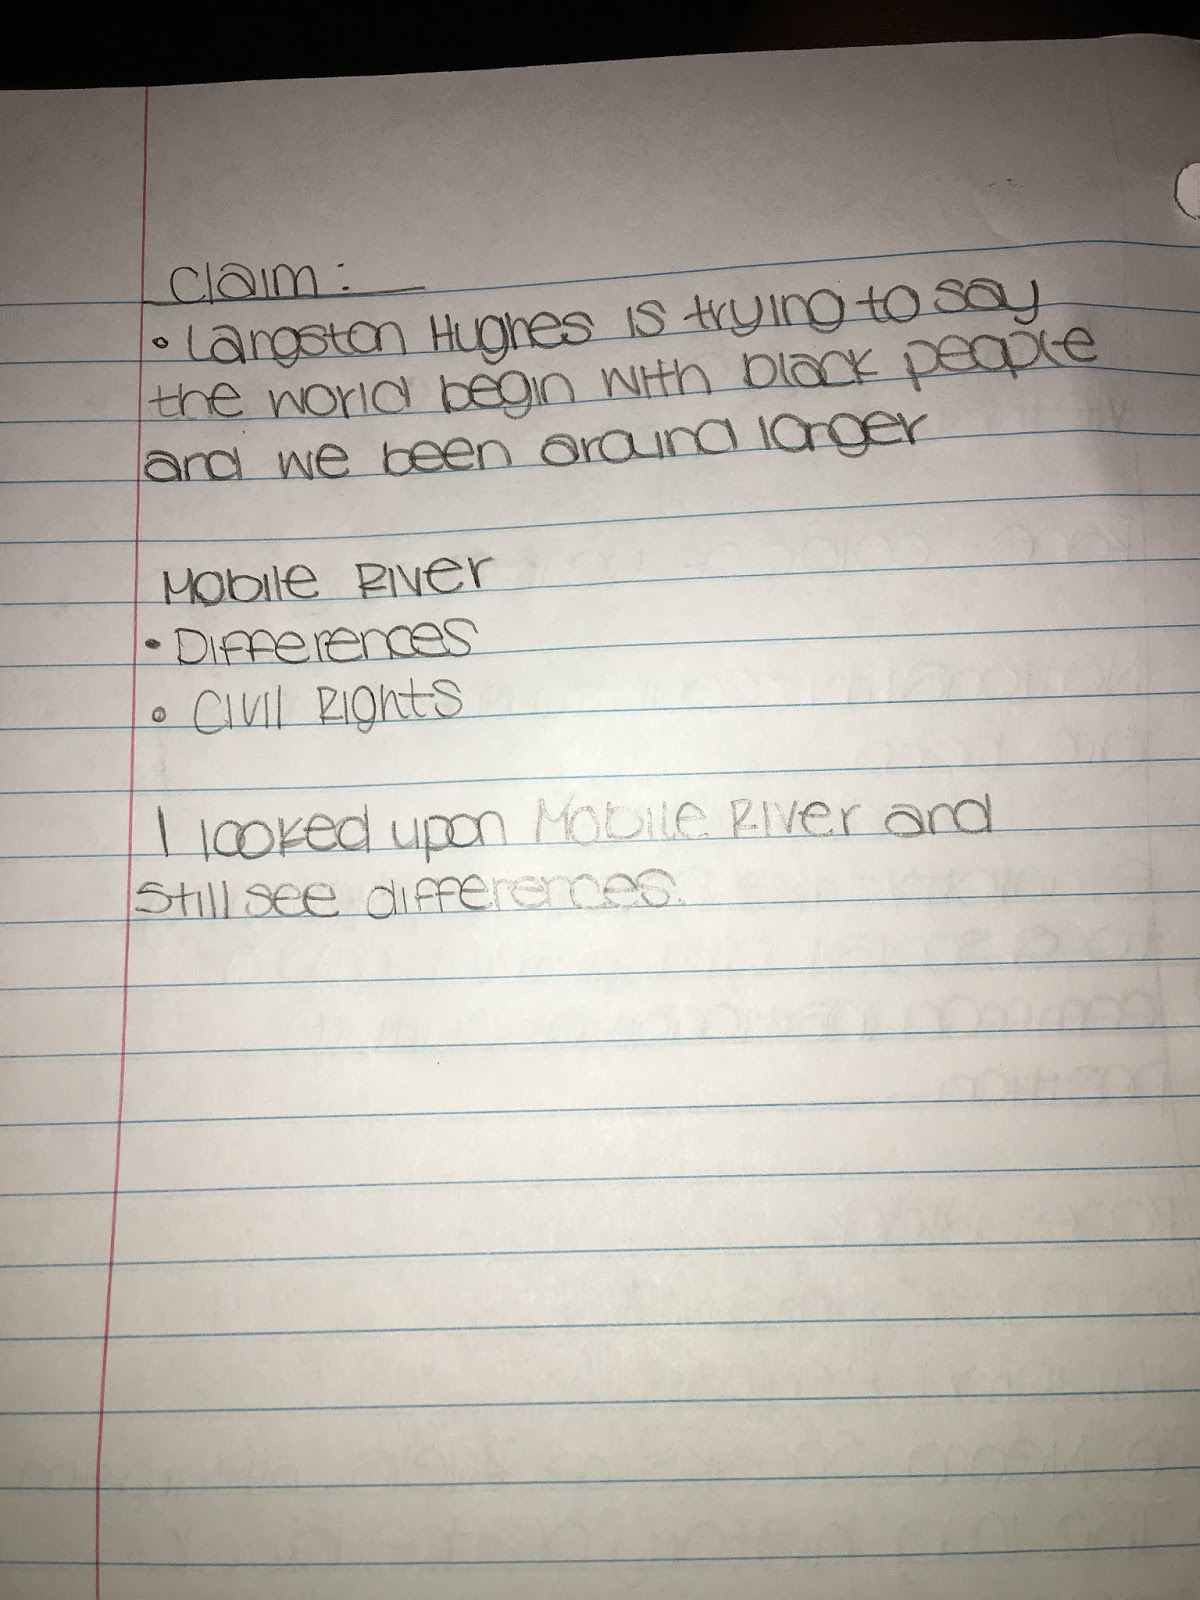 Claim:
• Langston Hughes is trying to say
the world begin with black people
and we been around longer
Mobile River
• Differences
• Civil Rights
I looked upon Mobile River and
still see differences.